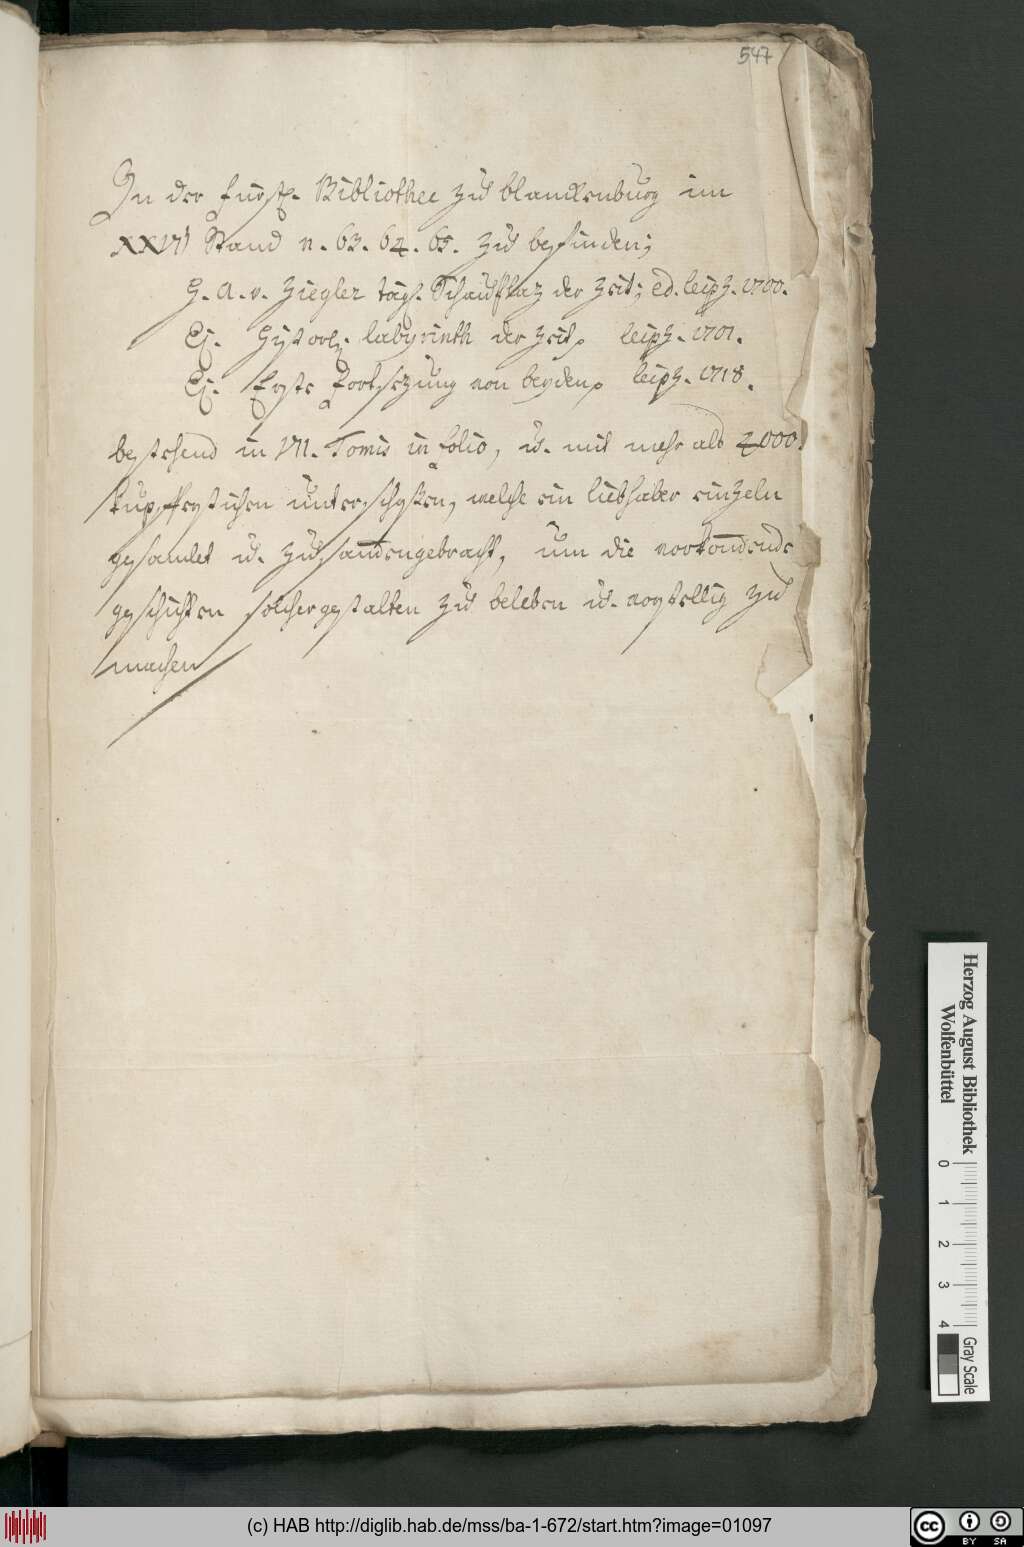 547
In der fürstl. Bibliothec zu blanckenburg im
XXVI Stand n. 63. 64. 65. zu befinden;
H. A. v. Ziegler tägl. Schauplaz der Zeit; ed. leipz. 1700.
Ej. Historl. labyrinth der Zeit, leipz. 1701.
Ej. Erste Fortsezung von beyden, leipz. 1718.
bestehend in VII. Tomis in folio, u. mit mehr als 2000.
kupfferstichen unter, welche ein liebhaber einzeln
gesamlet u. zusam̄engebracht, um die vorkom̄ende
geschichten solchergestalten zu beleben u. vorstellig zu
machen
Herzog August Bibliothek
Wolfenbüttel
0 1 2 3 4
Gray Scale
(c) HAB http://diglib.hab.de/mss/ba-1-672/start.htm?image=01097
cc BY SA